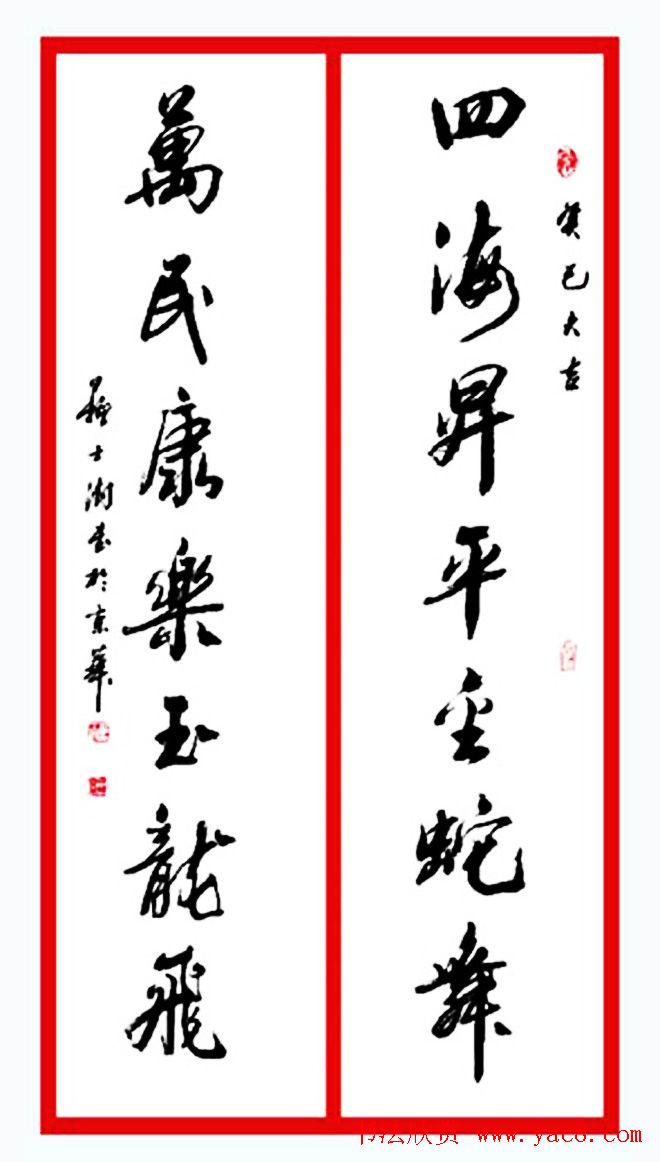 癸巳大吉
四海昇平金蛇舞
萬民康樂玉龍飛
蘇士澍書於京華
书法欣赏 www.yac8.com